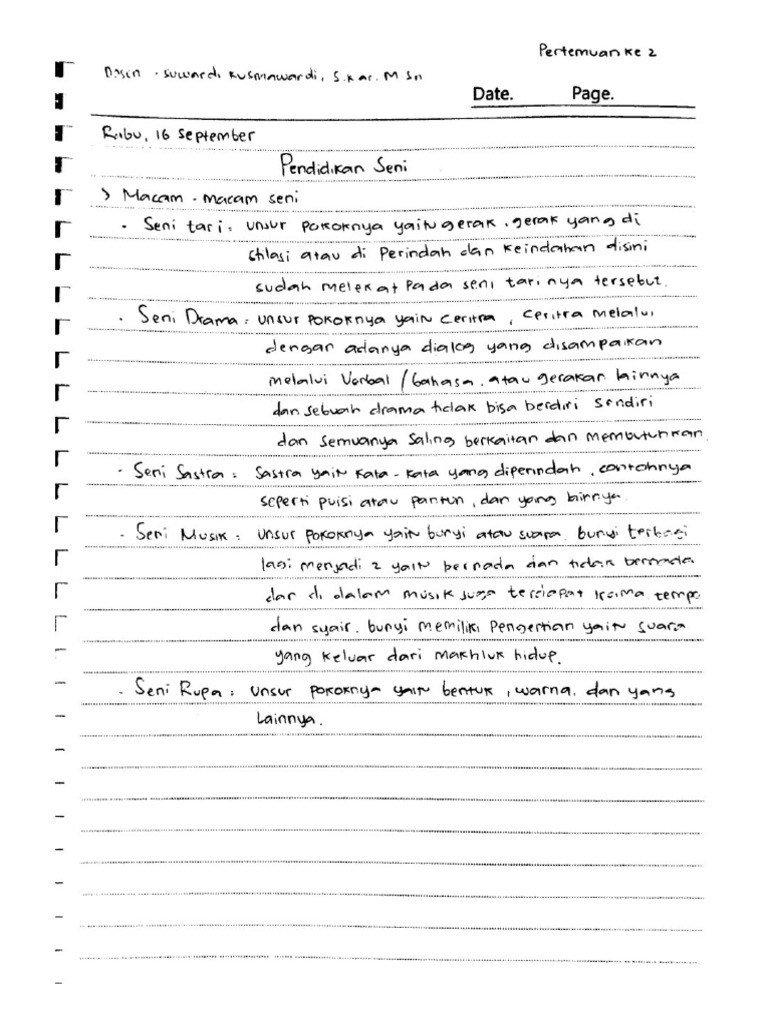 Pertemuan ke 2
Dosen . Suwardi Kusmawardi, S.Kar. M.Sn
Date. Page.
Rabu, 16 September
Pendidikan Seni
> Macam - macam seni
. Seni tari : unsur pokoknya yaitu gerak, gerak yang di
stilasi atau di perindah dan keindahan disini
sudah melekat pada seni tarinya tersebut.
. Seni Drama : unsur pokoknya yaitu ceritra, ceritra melalui
dengan adanya dialog yang disampaikan
melalui verbal / bahasa. atau gerakan lainnya
dan sebuah drama tidak bisa berdiri sendiri
dan semuanya saling berkaitan dan membutuhkan.
. Seni Sastra : Sastra yaitu kata - kata yang diperindah, contohnya
seperti puisi atau pantun, dan yang lainnya.
. Seni Musik : unsur pokoknya yaitu bunyi atau suara. bunyi terbagi
lagi menjadi 2 yaitu bernada dan tidak bernada
dar di dalam musik juga terdapat irama, tempo
dan syair. bunyi memiliki pengertian yaitu suara
yang keluar dari makhluk hidup.
. Seni Rupa : unsur pokoknya yaitu bentuk, warna, dan yang
lainnya.